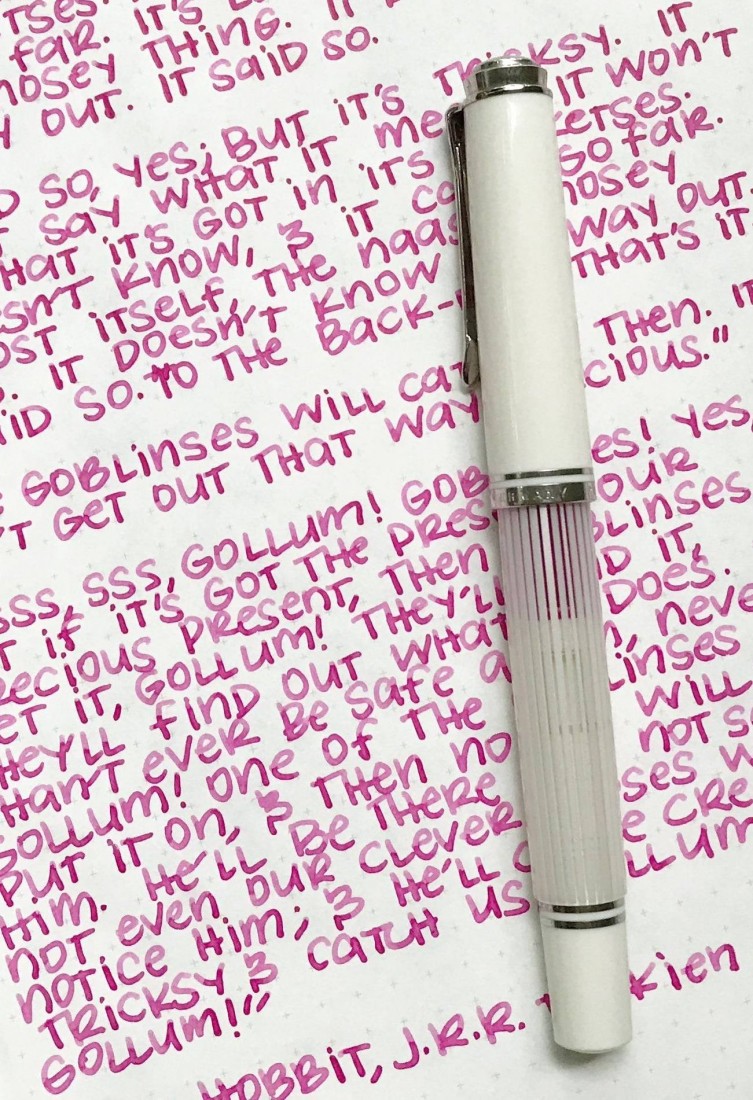 TSES. IT'S
FAR. IT'S
NOSEY THING. IT
Y OUT. IT SAID SO.
D SO, YES; BUT IT'S TRICKSY. IT
T SAY WHAT IT ME IT WON'T
HAT IT'S GOT IN ITS KETSES.
SN'T KNOW, & IT CA GO FAR.
OST ITSELF, THE NAS NOSEY
. IT DOESN'T KNOW WAY OUT
ID SO. TO THE BACK- THAT'S IT
GOBLINSES WILL CAT THEN. IT
'T GET OUT THAT WAY CIOUS."
SSS, SSS, GOLLUM! GOB ES! YES,
T IF IT'S GOT THE PRES OUR
RECIOUS PRESENT, THEN BLINSES
ET IT, GOLLUM! THEY'LL D IT,
HEY'LL FIND OUT WHAT DOES.
HAN'T EVER BE SAFE A N, NEVE
GOLLUM! ONE OF THE LINSES
PUT IT ON, & THEN NO WILL
HIM. HE'LL BE THERE NOT S
NOT EVEN OUR CLEVER SES W
NOTICE HIM; & HE'LL C E CRE
TRICKSY & CATCH US LLUM
GOLLUM!"
HOBBIT, J.R.R. T KIEN